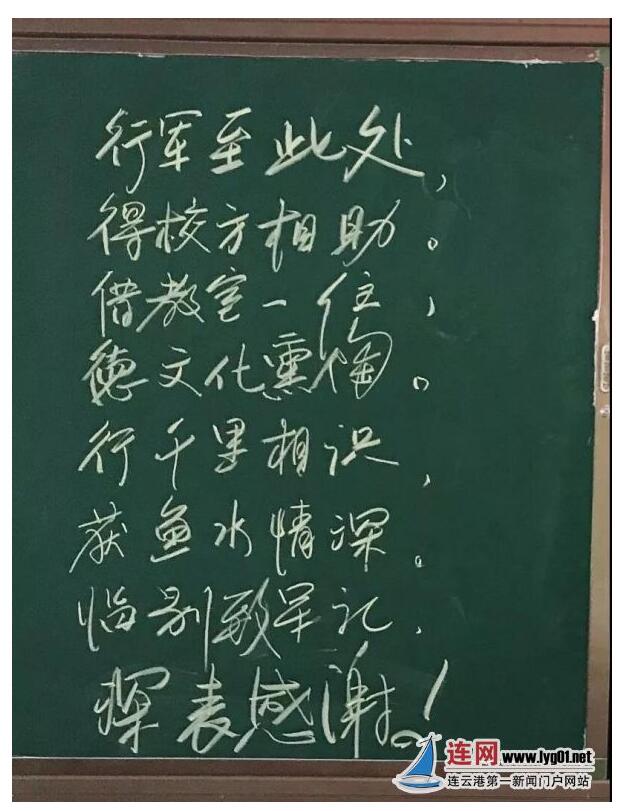 行军至此处，
得校方相助。
借教室一住，
德文化熏陶。
行千里相识，
获鱼水情深。
临别致军记，
深表感谢！
连网 www.lyg01.net
连云港第一新闻门户网站